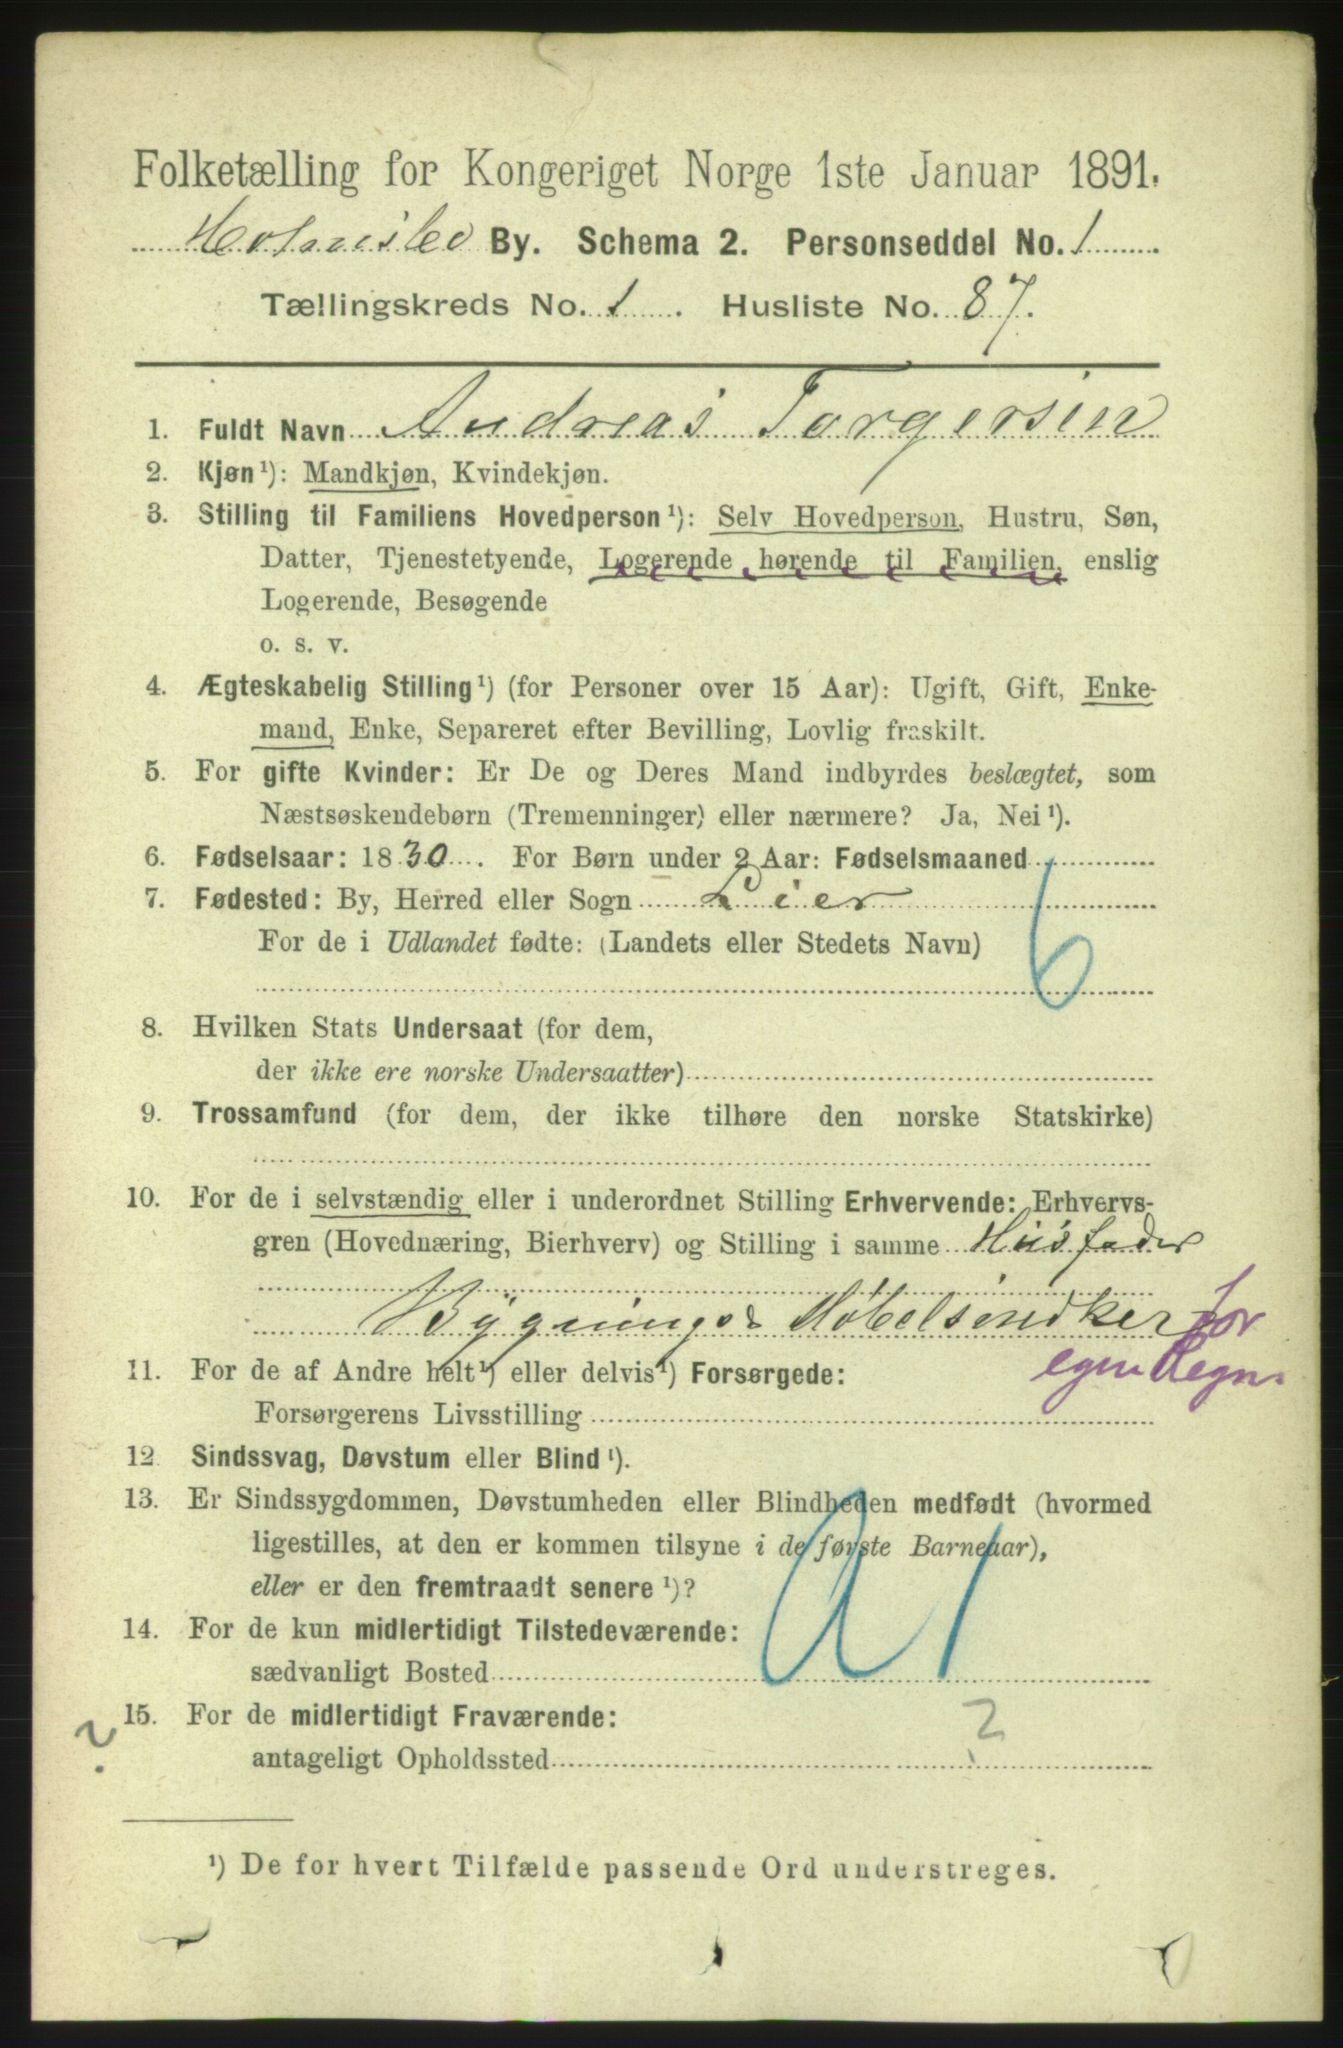 Folketælling for Kongeriget Norge 1ste Januar 1891.
Holmsbo By. Schema 2. Personseddel No. 1
Tællingskreds No. 1. Husliste No. 87.
1. Fuldt Navn Andreas Torgersen
2. Kjøn¹): Mandkjøn, Kvindekjøn.
3. Stilling til Familiens Hovedperson¹): Selv Hovedperson, Hustru, Søn,
Datter, Tjenestetyende, Logerende hørende til Familien, enslig
Logerende, Besøgende
o. s. v.
4. Ægteskabelig Stilling¹) (for Personer over 15 Aar): Ugift, Gift, Enke-
mand, Enke, Separeret efter Bevilling, Lovlig fraskilt.
5. For gifte Kvinder: Er De og Deres Mand indbyrdes beslægtet, som
Næstsøskendebørn (Tremenninger) eller nærmere? Ja, Nei¹).
6. Fødselsaar: 1830. For Børn under 2 Aar: Fødselsmaaned
7. Fødested: By, Herred eller Sogn Lier
For de i Udlandet fødte: (Landets eller Stedets Navn)
6
8. Hvilken Stats Undersaat (for dem,
der ikke ere norske Undersaatter)
9. Trossamfund (for dem, der ikke tilhøre den norske Statskirke)
10. For de i selvstændig eller i underordnet Stilling Erhvervende: Erhvervs-
gren (Hovednæring, Bierhverv) og Stilling i samme Husfader
Bygnings & Møbelsnedker for
egen Regn.
11. For de af Andre helt¹) eller delvis¹) Forsørgede:
Forsørgerens Livsstilling
12. Sindssvag, Døvstum eller Blind¹).
13. Er Sindssygdommen, Døvstumheden eller Blindheden medfødt (hvormed
ligestilles, at den er kommen tilsyne i de første Barneaar),
eller er den fremtraadt senere¹)?
a 1
14. For de kun midlertidigt Tilstedeværende:
sædvanligt Bosted
? 15. For de midlertidigt Fraværende:
antageligt Opholdssted ?
¹) De for hvert Tilfælde passende Ord understreges.